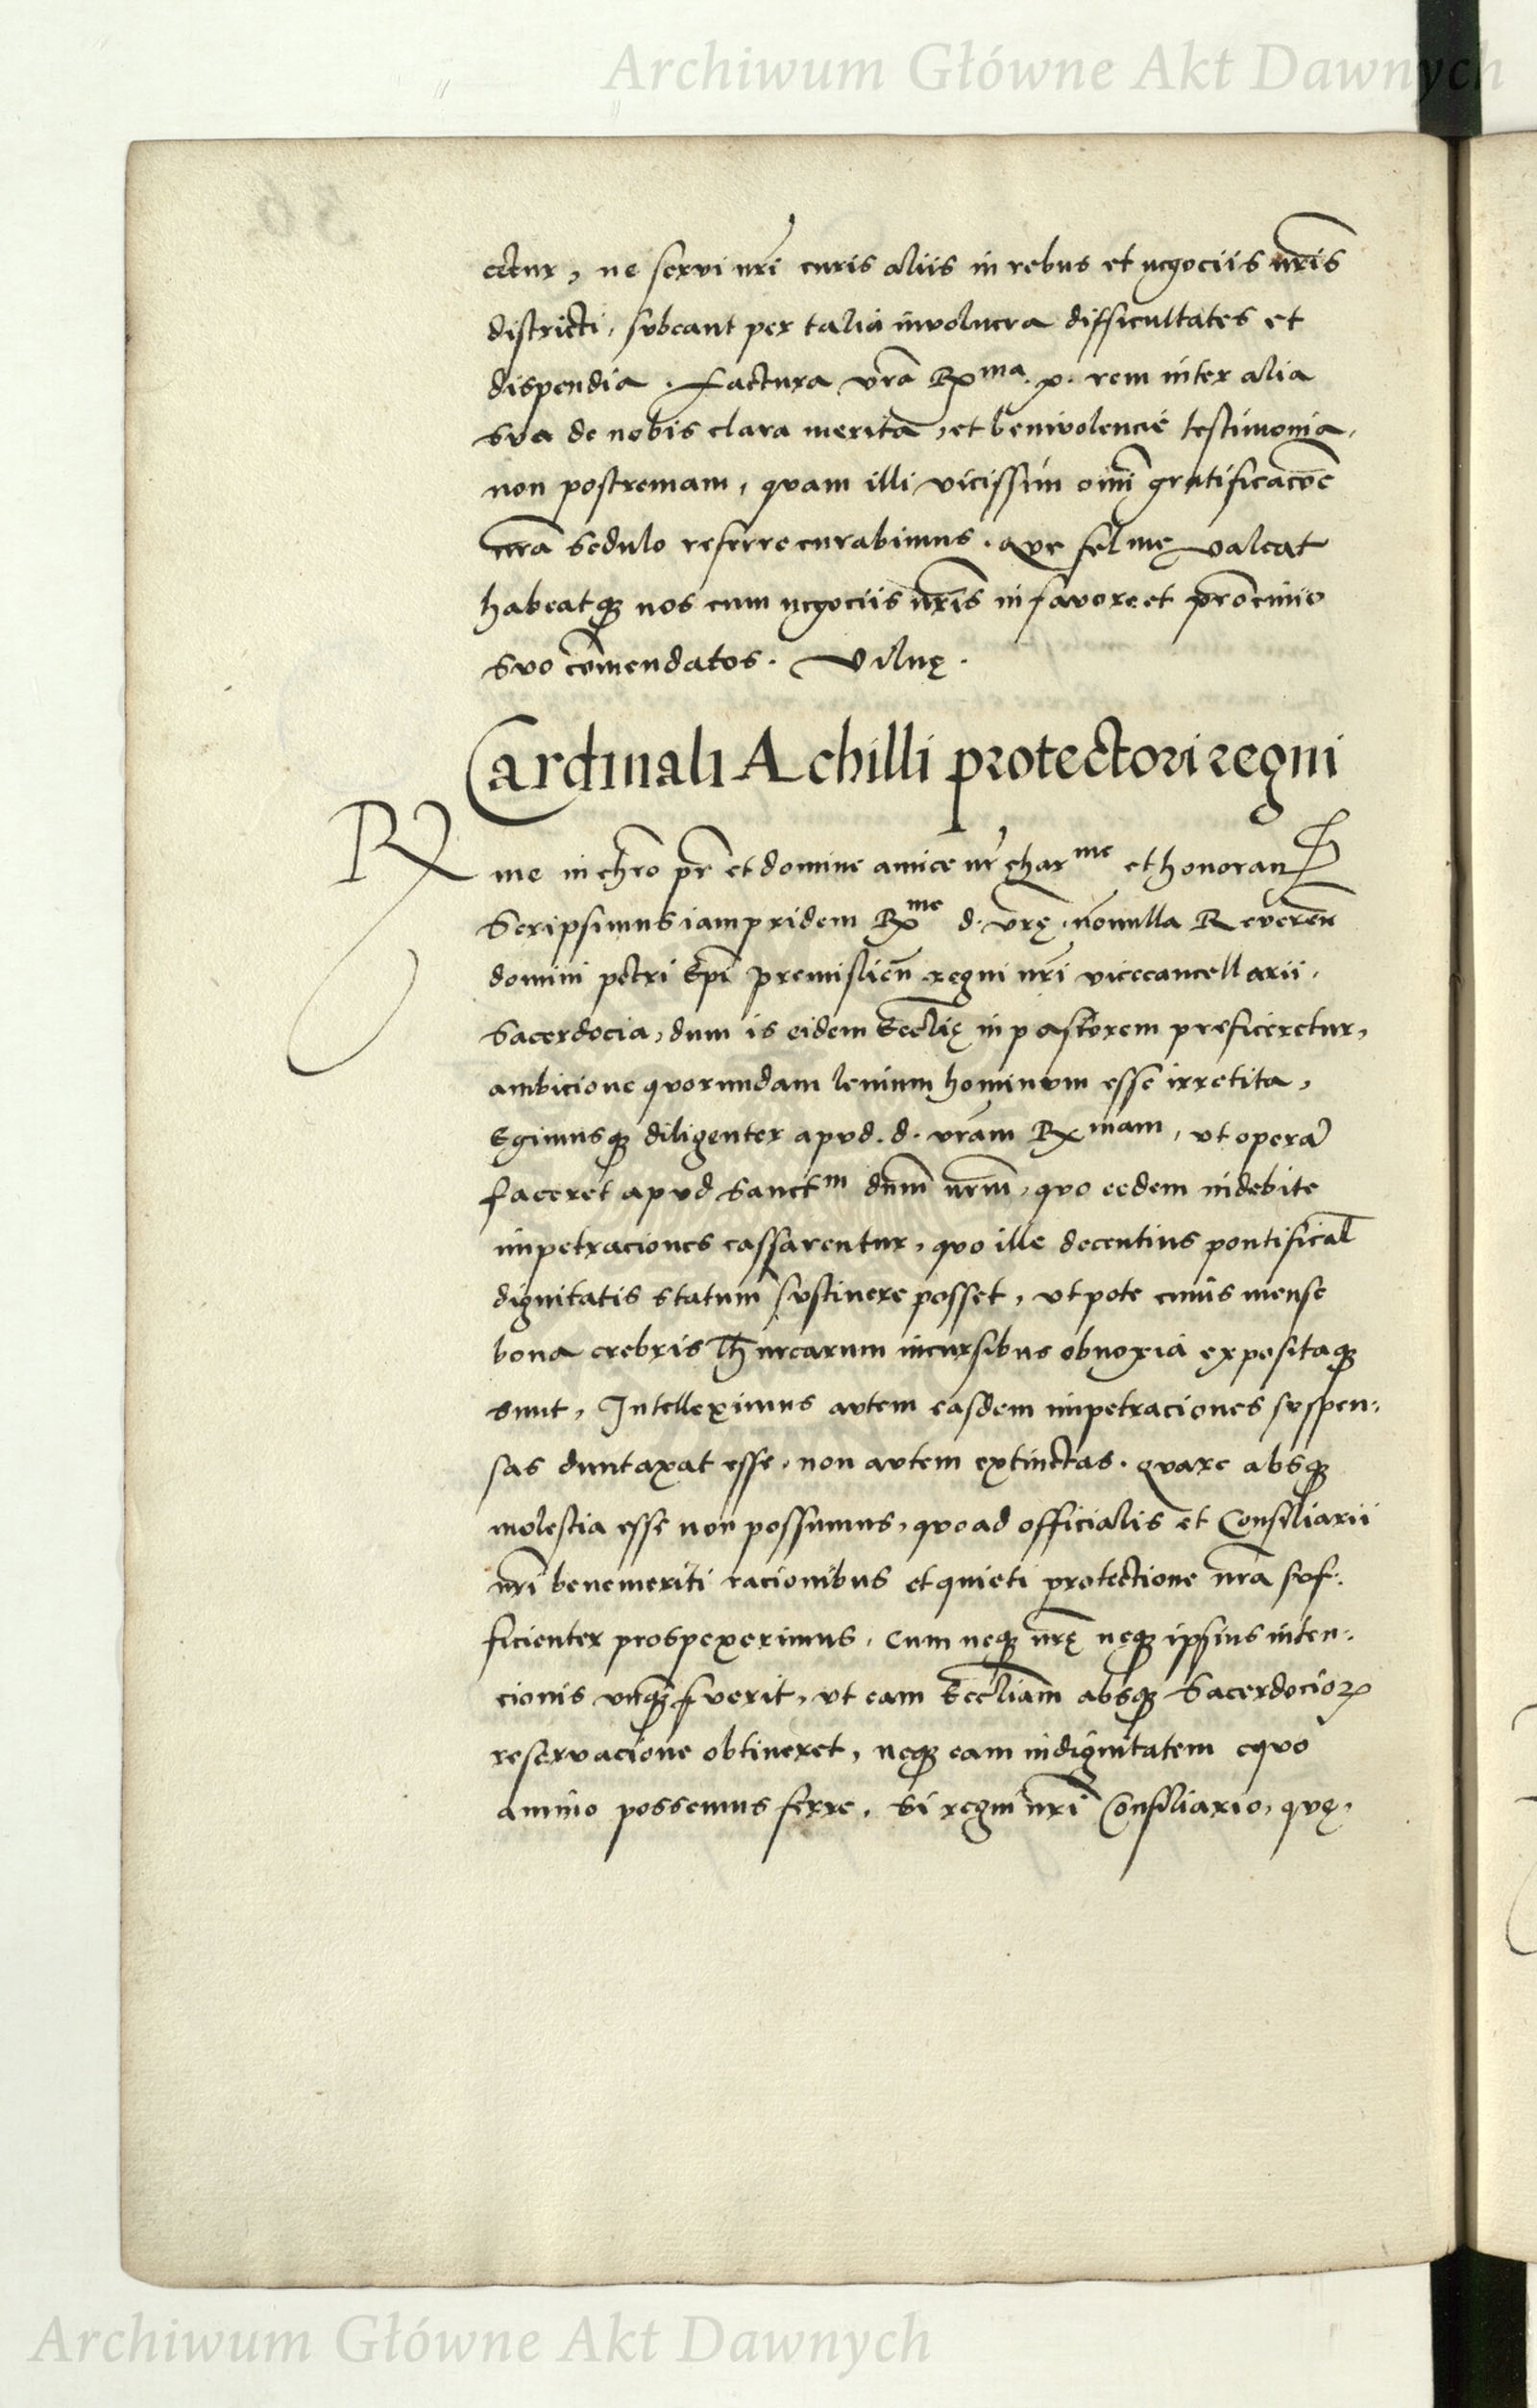 Archiwum Główne Akt Dawnych
ectur, ne servi nr̃i curis aliis in rebus et negociis nr̃is
districti, subeant per talia involucra difficultates et
dispendia. factura vr̃a Rma. p. rem inter alia
sva de nobis clara merita, et benivolencie testimonia,
non postremam, quam illi vicissim om̃i gratificacõe
nr̃a sedulo referre curabimus. Que felme valeat
habeatq̃ nos cum negociis nr̃is in favore et prõcinio
svo com̃endatos. Vilnę.
Cardinali Achilli protectori regni
Rme in chr̃o pr̃ et domine amice nr̃ charme et honoran
Scripsimus iampridem Rme d. vr̃ę. nonnulla Reveren̄
domini petri Ep̃i premislien̄ regni nr̃i vicecancellarii,
Sacerdocia, dum is eidem Eccl̃ię in pastorem preficeretur,
ambicione quorundam levium hominum esse irretita,
Egimusq̃ diligenter apud. d. vr̃am Rmam, ut operã
faceret apud Sanctm dñm nr̃m, quo eedem indebite
impetraciones cassarentur, quo ille decentius pontifical̃
dignitatis statum sustinere posset, utpote cuius mense
bona crebris Thurcarum incursibus obnoxia expositaq̃
sunt, Intelleximus autem easdem impetraciones suspen-
sas duntaxat esse, non autem extinctas. Quare absq̃
molestia esse non possumus, quoad officialis et Consiliarii
nr̃i benemeriti racionibus et quieti protectione nr̃a suf-
ficienter prospexerimus, cum neq̃ nr̃ę neq̃ ipsius inten-
cionis unq̃ fuerit, ut eam Eccl̃iam absq̃ Sacerdocioꝝ
reservacione obtineret, neq̃ eam indignitatem equo
animo possemus ferre, si regni nr̃i Consiliario, quę,
Archiwum Główne Akt Dawnych